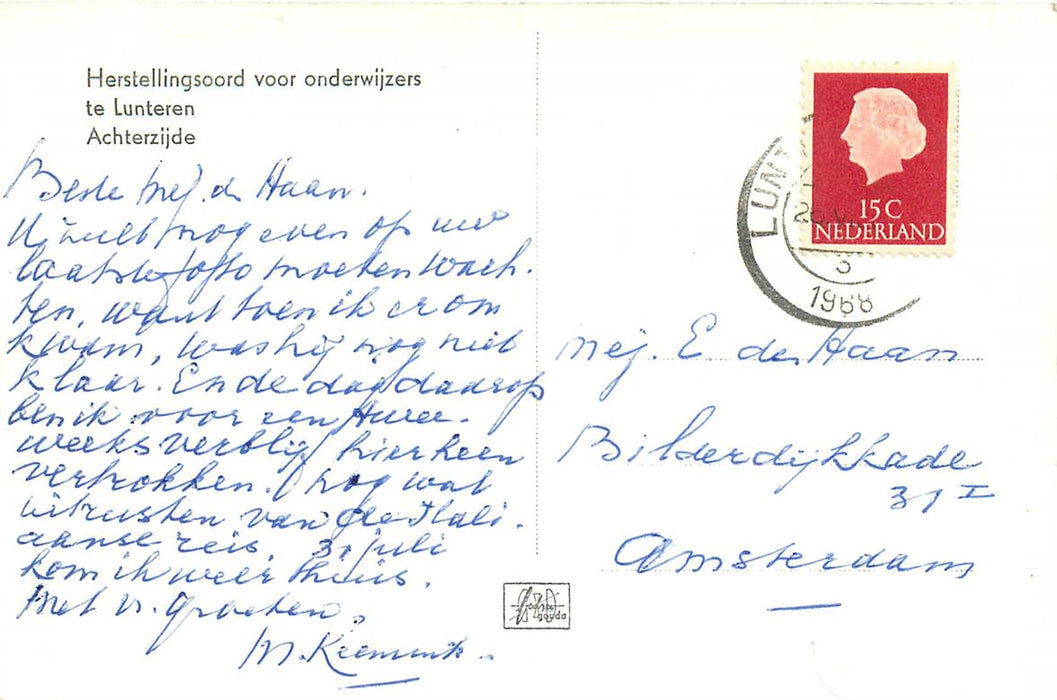 Herstellingsoord voor onderwijzers
te Lunteren
Achterzijde
Beste Mej. de Haan.
U zult nog even op uw
laatste foto moeten wach.
ten, want toen ik er om
kwam, was hij nog niet
klaar. En de dag daarop
ben ik voor een twee.
weeks verblijf hierheen
vertrokken. nog wat
uitrusten van de Itali.
aanse reis. 31 juli
kom ik weer thuis.
Met vr. groeten.
M.
15 C
NEDERLAND
LUNT
1968
Mej. E. de Haan
Bilderdijkkade
31 I
Amsterdam